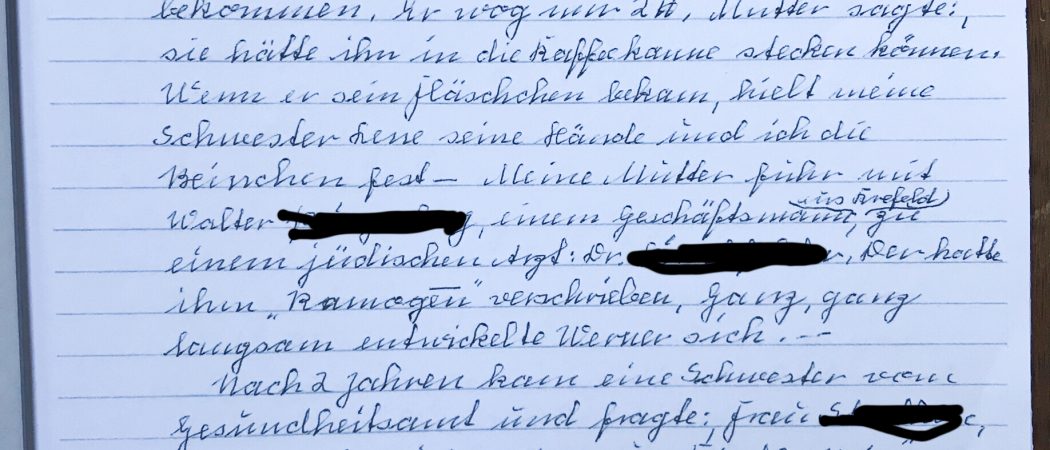 bekommen. Er wog nur 2 ℔, Mutter sagte:,
sie hätte ihn in die Kaffeekanne stecken können.
Wenn er sein Fläschchen bekam, hielt meine
Schwester Lene seine Hände und ich die
Beinchen fest – Meine Mutter fuhr mit
aus Krefeld
Walter , einem Geschäftsmann, zu
einem jüdischen Arzt: Dr. , Der hatte
ihm „Ramogen" verschrieben, Ganz, ganz
langsam entwickelte Werner sich. . –
Nach 2 Jahren kam eine Schwester vom
Gesundheitsamt und fragte: Frau ,